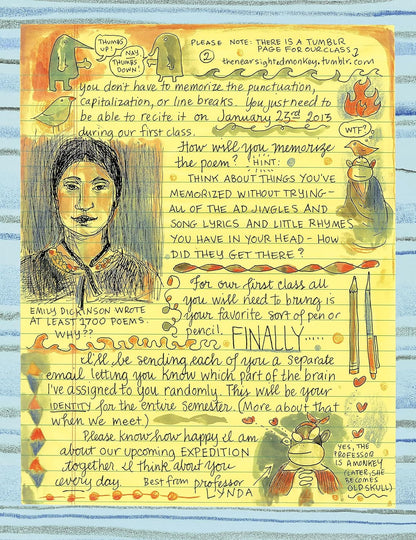 THUMBS UP!
NAY, THUMBS DOWN!
PLEASE NOTE: THERE IS A TUMBLR
PAGE FOR OUR CLASS
2
thenearsightedmonkey.tumblr.com
you don't have to memorize the punctuation,
capitalization, or line breaks. You just need to
be able to recite it on January 23rd 2013
during our first class.
WTF?
How will you memorize
the poem? HINT:
THINK ABOUT THINGS YOU'VE
MEMORIZED WITHOUT TRYING-
ALL OF THE AD JINGLES AND
SONG LYRICS AND LITTLE RHYMES
YOU HAVE IN YOUR HEAD - HOW
DID THEY GET THERE?
EMILY DICKINSON WROTE
AT LEAST 1700 POEMS.
WHY??
For our first class all
you will need to bring is
your favorite sort of pen or
pencil. FINALLY.....
I'll be sending each of you a separate
email letting you know which part of the brain
I've assigned to you randomly. This will be your
IDENTITY for the entire semester. (More about that
when we meet)
Please know how happy I am
about our upcoming EXPEDITION
together. I think about you
every day. Best from professor
LYNDA
YES, THE
PROFESSOR
IS A MONKEY
(LATER, SHE
BECOMES
OLD SKULL)